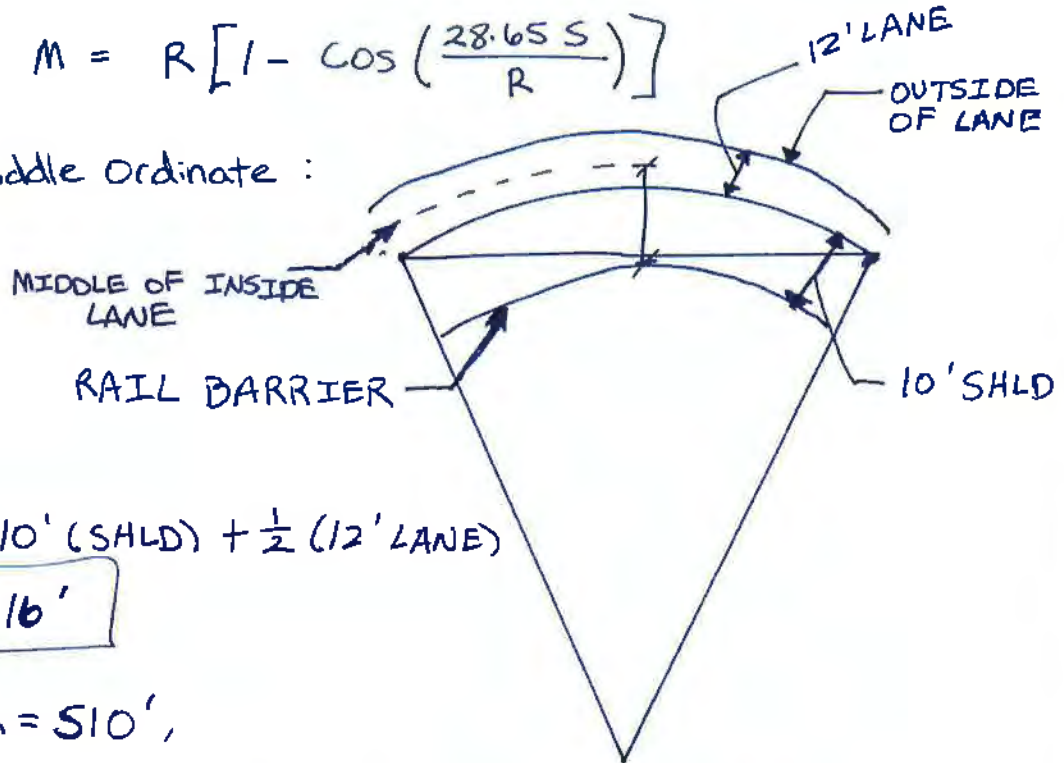 M = R [1 - Cos (28.65 S / R)]
12' LANE
OUTSIDE
OF LANE
ddle Ordinate :
MIDDLE OF INSIDE
LANE
RAIL BARRIER
10' SHLD
10' (SHLD) + 1/2 (12' LANE)
16'
= 510',